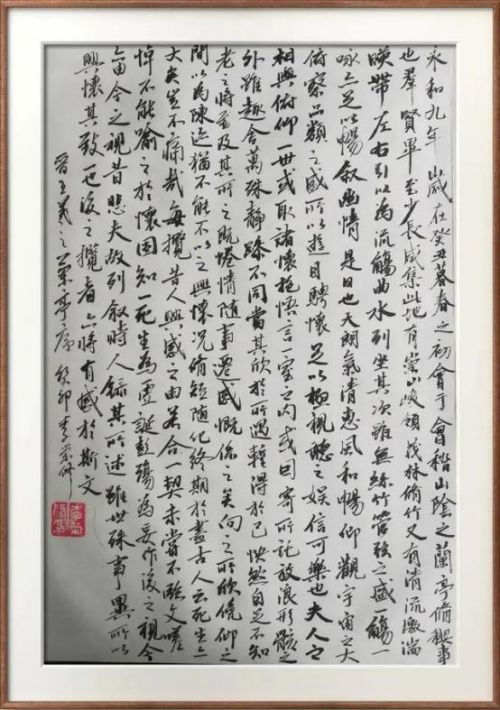 永和九年歲在癸丑暮春之初會于會稽山陰之蘭亭脩禊事
也羣賢畢至少長咸集此地有崇山峻領茂林脩竹又有清流激湍
暎帶左右引以為流觴曲水列坐其次雖無絲竹管弦之盛一觴一
詠亦足以暢敘幽情是日也天朗氣清惠風和暢仰觀宇宙之大
俯察品類之盛所以遊目騁懷足以極視聽之娛信可樂也夫人之
相與俯仰一世或取諸懷抱悟言一室之內或因寄所託放浪形骸之
外雖趣舍萬殊靜躁不同當其欣於所遇蹔得於己怏然自足不知
老之將至及其所之既惓情隨事遷感慨係之矣向之所欣俛仰之
間以為陳迹猶不能不以之興懷況脩短隨化終期於盡古人云死生亦
大矣豈不痛哉每攬昔人興感之由若合一契未嘗不臨文嗟
悼不能喻之於懷固知一死生為虛誕彭殤為妄作後之視今
亦由今之視昔悲夫故列敘時人錄其所述雖世殊事異所以
興懷其致一也後之攬者亦將有感於斯文
晉王羲之蘭亭序 癸卯 李崇